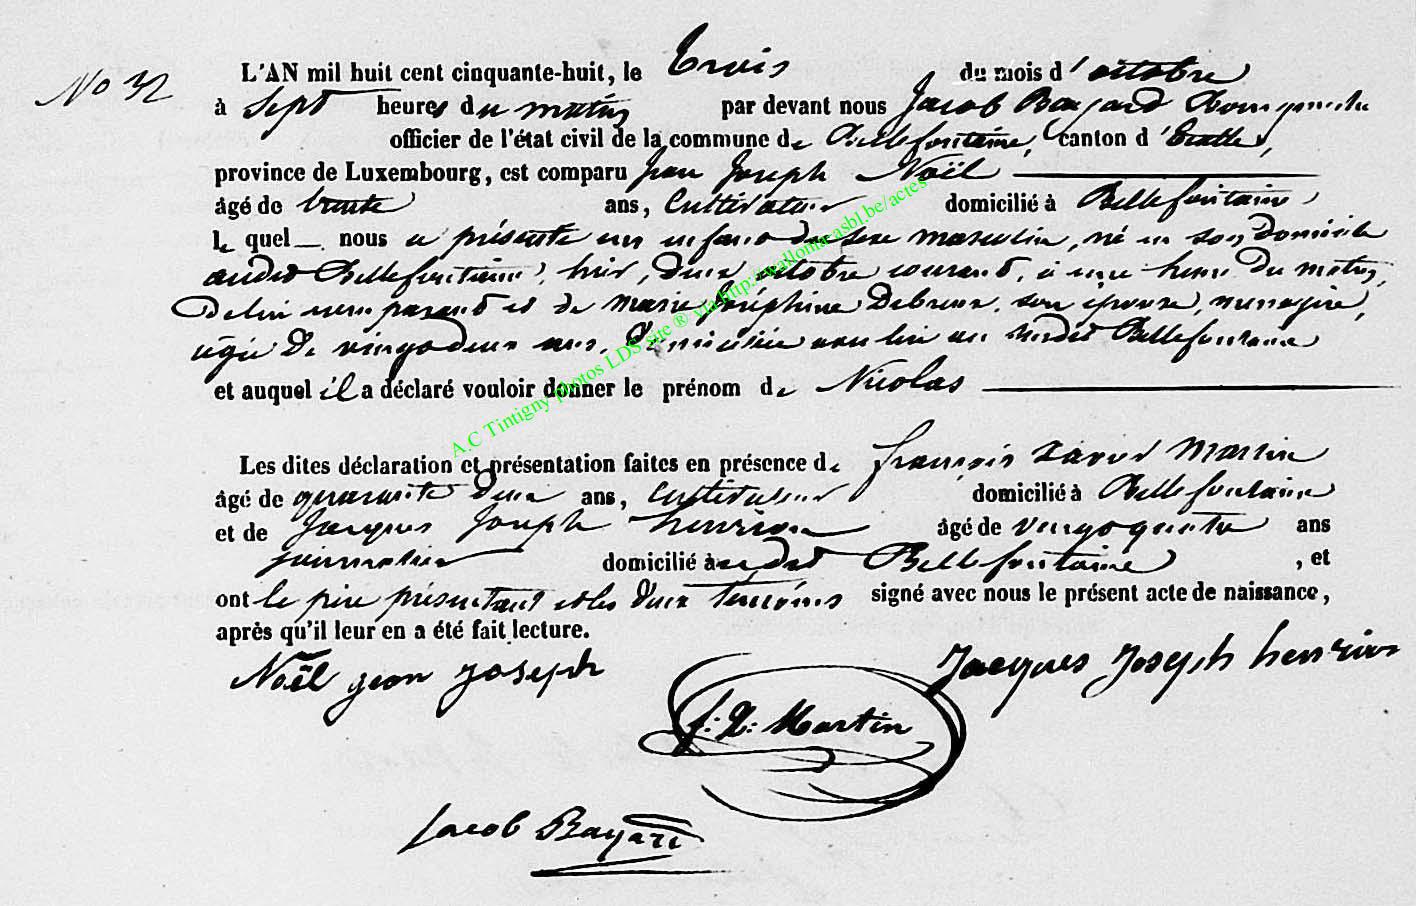 No 32
L'AN mil huit cent cinquante-huit, le Trois du mois d'octobre
à Sept heures du matin par devant nous Jacob Bayard Bourgmestre
officier de l'état civil de la commune de Bellefontaine, canton d'Etalle,
province de Luxembourg, est comparu Jean Joseph Noël
âgé de trente ans, Cultivateur domicilié à Bellefontaine
le quel nous a présenté un enfant du sexe masculin, né en son domicile
audit Bellefontaine, hier, deux octobre courant, à une heure du matin,
De lui comparant et de Marie Joséphine Debreux, son épouse, menagère,
agée De vingt deux ans, Domiciliée avec lui au susdit Bellefontaine
et auquel il a déclaré vouloir donner le prénom de Nicolas
Les dites déclaration et présentation faites en présence de françois Xavier Martin
âgé de quarante deux ans, Cultivateur domicilié à Bellefontaine
et de Jacques Joseph henrion âgé de vingt quatre ans
journalier domicilié à audit Bellefontaine, et
ont le père présentant et les deux témoins signé avec nous le présent acte de naissance,
après qu'il leur en a été fait lecture.
Noël jean joseph
Jacques Joseph henrion
f. X. Martin
Jacob Bayard
A.C Tintigny photos LDS site ® via http://wallonia.asbl.be/actes